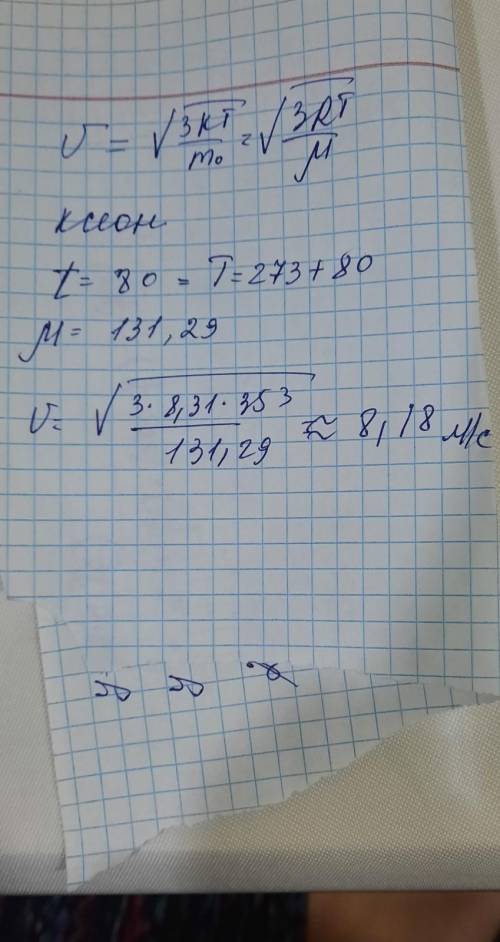 v = √3kT/m₀ = √3RT/M
ксеон
t = 80 = T = 273 + 80
M = 131,29
v = √3·8,31·353/131,29 ≈ 8,18 м/с